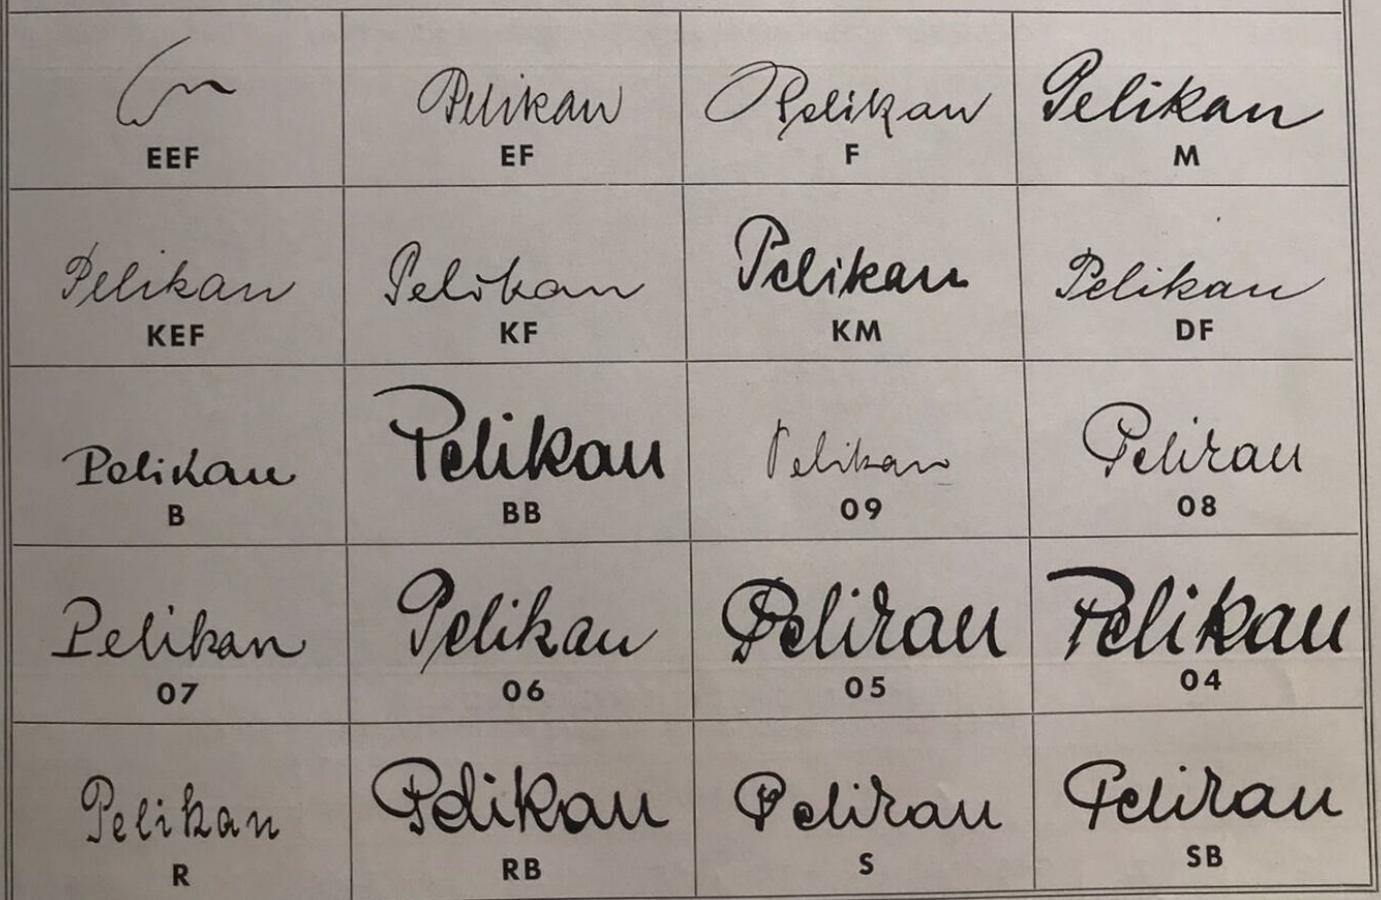 EEF
Pelikan
EF
Pelikan
F
Pelikan
M
Pelikan
KEF
Pelikan
KF
Pelikan
KM
Pelikan
DF
Pelikan
B
Pelikan
BB
Pelikan
09
Pelikan
08
Pelikan
07
Pelikan
06
Pelikan
05
Pelikan
04
Pelikan
R
Pelikan
RB
Pelikan
S
Pelikan
SB